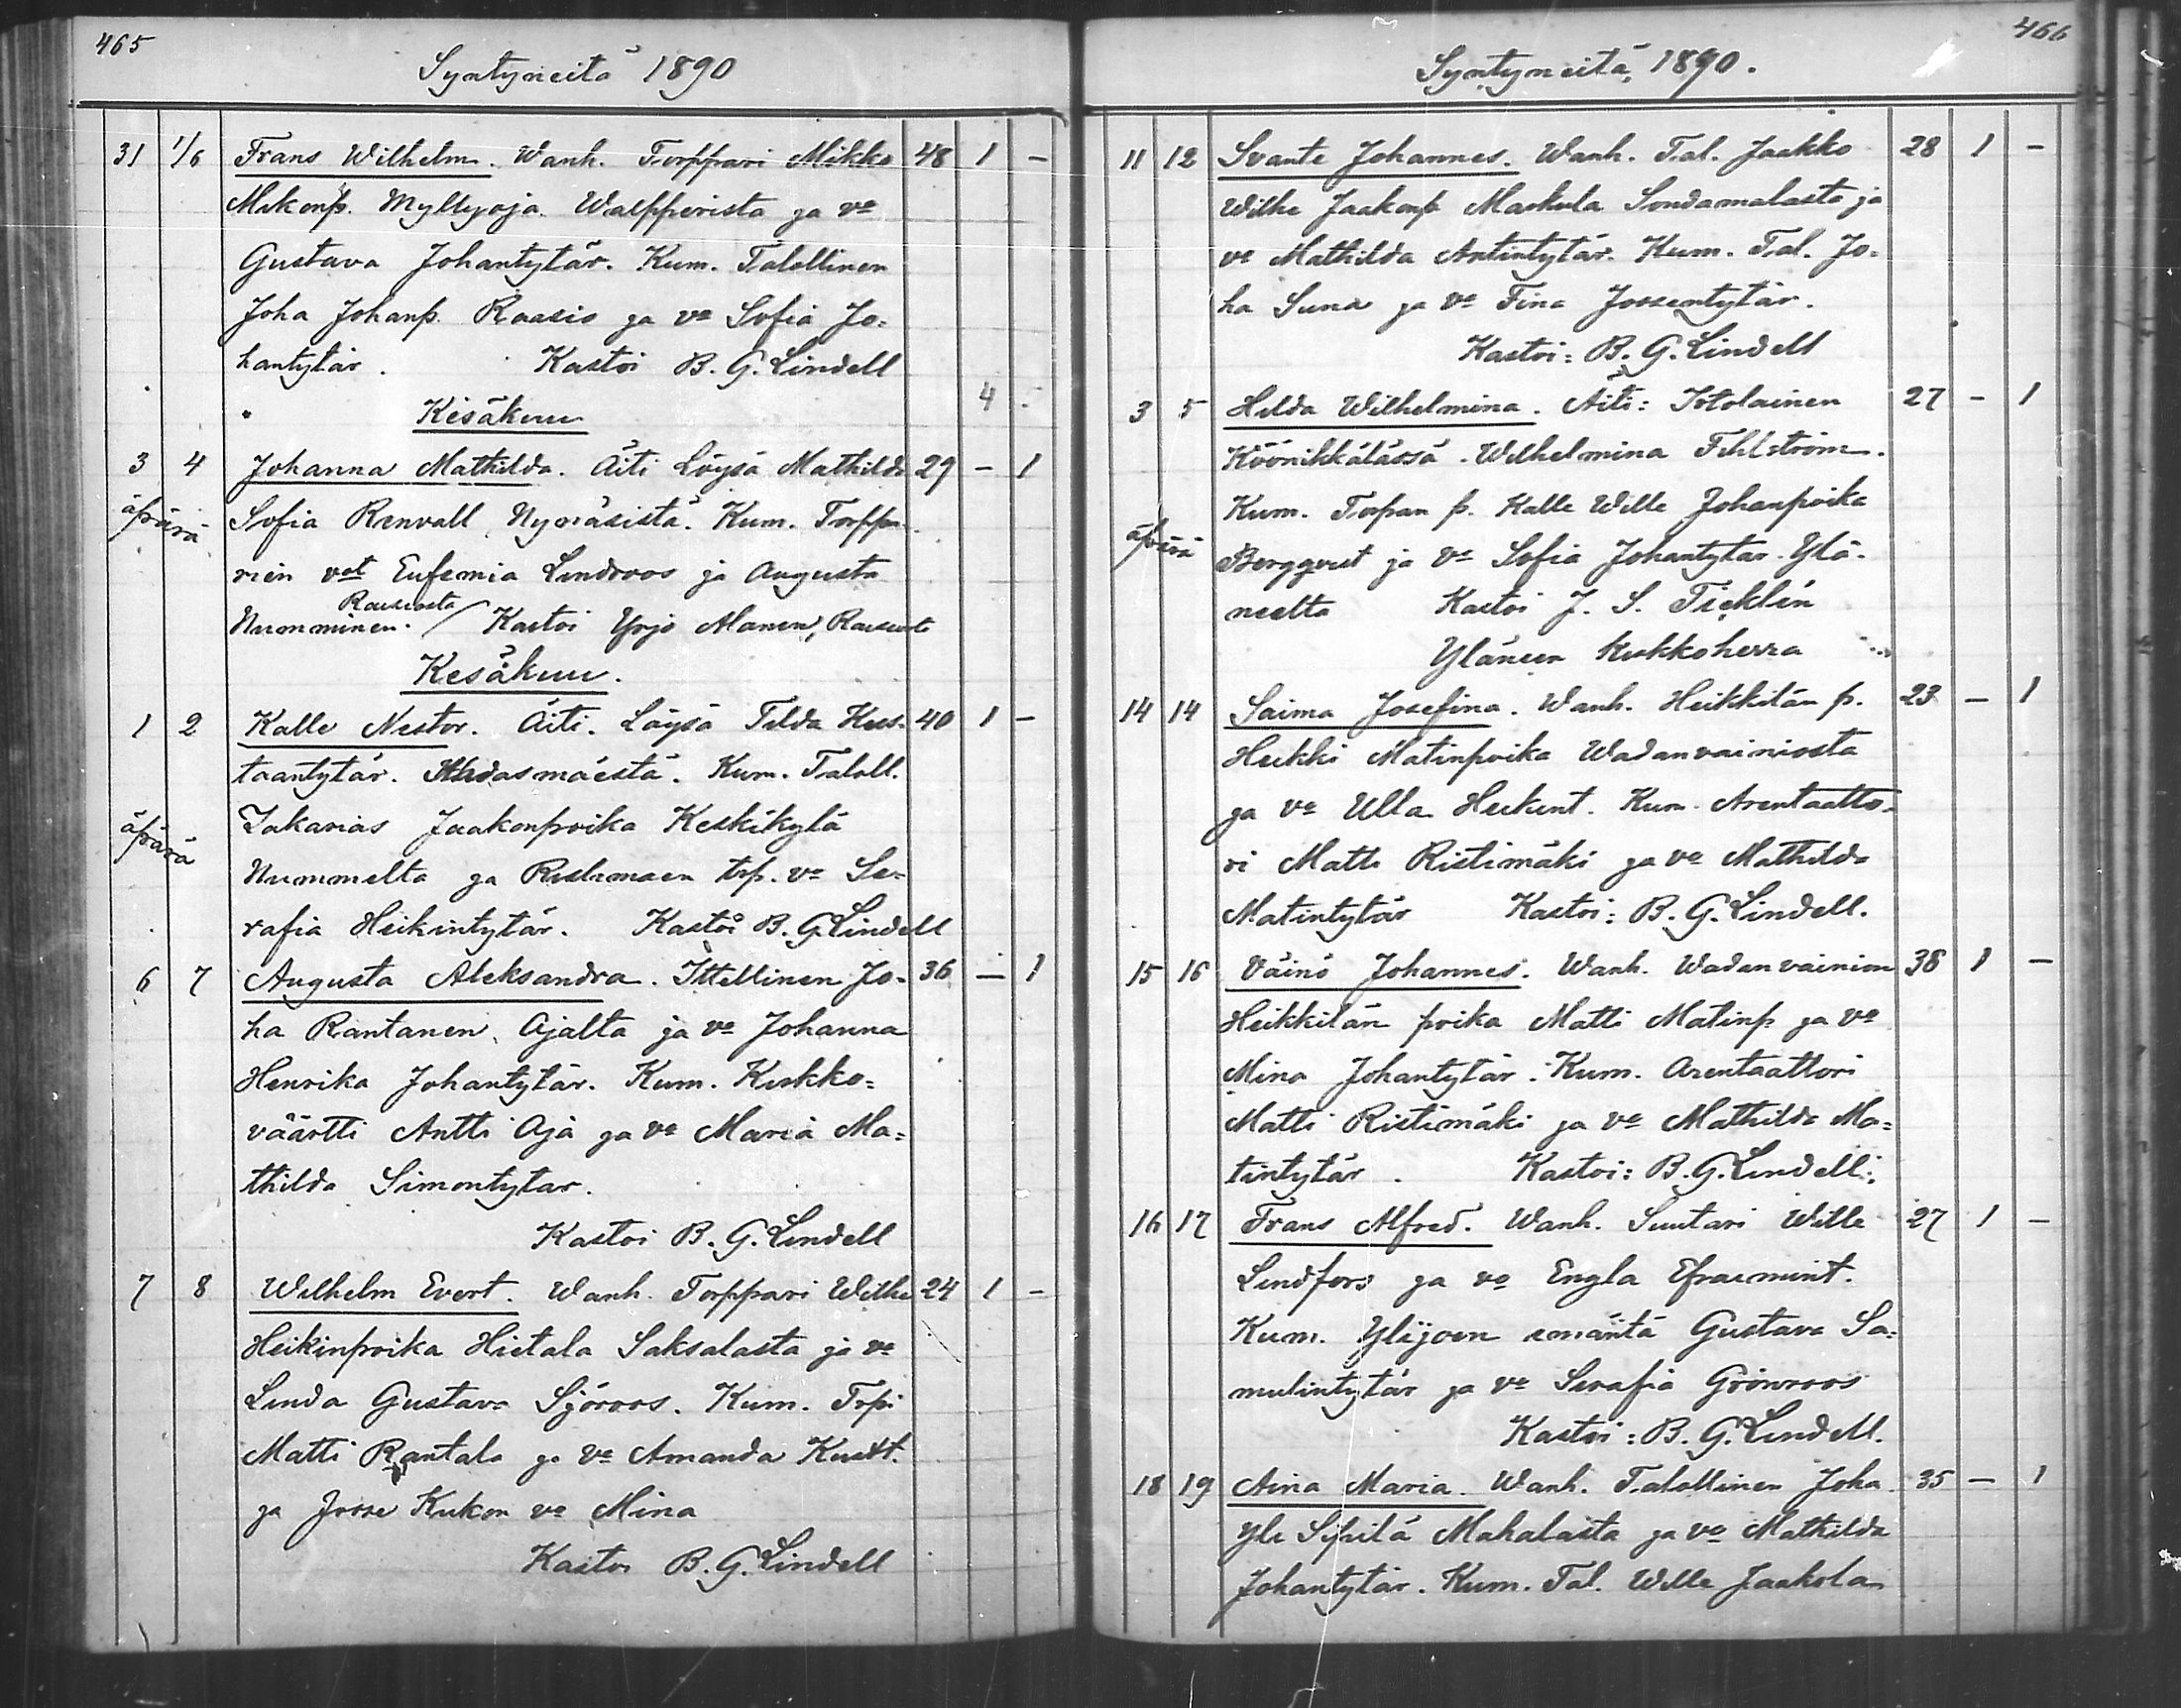 465
Syntyneitä 1890
31 1/6 Frans Wilhelm. Wanh. Torppari Mikko 48 1 -
Mikonp. Myllyoja Walpperista ja vo
Gustava Johantytär. Kum. Talollinen
Joha Johanp. Raasio ja vo Sofia Jo=
hantytär. Kastoi B. G. Lindell
Kesäkuu 4
3 4 Johanna Mathilda. Äiti Löysä Mathilda 29 - 1
äpärä Sofia Renvall Nymäsistä. Kum. Torppa-
rien vot Eufemia Lindroos ja Augusta
Rausiosta
Numminen. / Kastoi Yrjö Alanen,
Kesäkuu.
1 2 Kalle Nestor. Äiti. Löysä Tilda Kus- 40 1 -
taantytär. Kum. Taloll.
äpärä Zakarias Jaakonpoika Keskikylä
Nummelta ja Ristimäen trp. vo Se=
rafia Heikintytär. Kastoi B. G. Lindell
6 7 Augusta Aleksandra. Ittellinen Jo- 36 - 1
ha Rantanen Ajalta ja vo Johanna
Henrika Johantytär. Kum. Kirkko=
väärtti Antti Aja ja vo Maria Ma=
thilda Simontytar.
Kastoi B. G. Lindell
7 8 Wilhelm Evert. Wanh. Torppari Wilhe 24 1 -
Heikinpoika Hietala Saksalasta ja vo
Linda Gustava Sjöroos. Kum. Trp.
Matti Rantala ja vo Amanda Kustt.
ja Josse Kukon vo Mina
Kastoi B. G. Lindell
466
Syntyneitä 1890.
11 12 Svante Johannes. Wanh. Tal. Jaakko 28 1 -
Wilhe Jaakonp Markula Sondamalasta ja
vo Mathilda Antintytär. Kum. Tal. Jo=
ha Suna ja vo Fina Jossentytär.
Kastoi: B. G. Lindell
3 5 Hilda Wilhelmina. Äiti: Itolainen 27 - 1
Köönikkälässä. Wilhelmina Fihlström.
Kum. Torpan p. Kalle Wille Johanpoika
äpärä Bergqvist ja vo Sofia Johantytar Ylä-
neelta Kastoi J. S. Ticklén
Yläneen kirkkoherra
14 14 Saima Josefina. Wanh. Heikkilän p. 23 - 1
Heikki Matinpoika Wadanvainiosta
ja vo Ulla Heikint. Kum. Arentaatto-
ri Matti Ristimäki ja vo Mathilda
Matintytär Kastoi: B. G. Lindell.
15 16 Väinö Johannes. Wanh. Wadanvainion 38 1 -
Heikkilän poika Matti Matinp ja vo
Mina Johantytär. Kum. Arentaattori
Matti Ristimäki ja vo Mathilda Ma=
tintytär. Kastoi: B. G. Lindell.
16 17 Frans Alfred. Wanh. Suutari Wille 27 1 -
Lindfors ja vo Engla Efraimint.
Kum. Ylijoen emäntä Gustava Sa=
mulintytär ja vo Serafia Grönroos
Kastoi: B. G. Lindell.
18 19 Aina Maria. Wanh. Talollinen Joha 35 - 1
Yli Sipilä Mahalasta ja vo Mathilda
Johantytär. Kum. Tal. Wille Jaakola